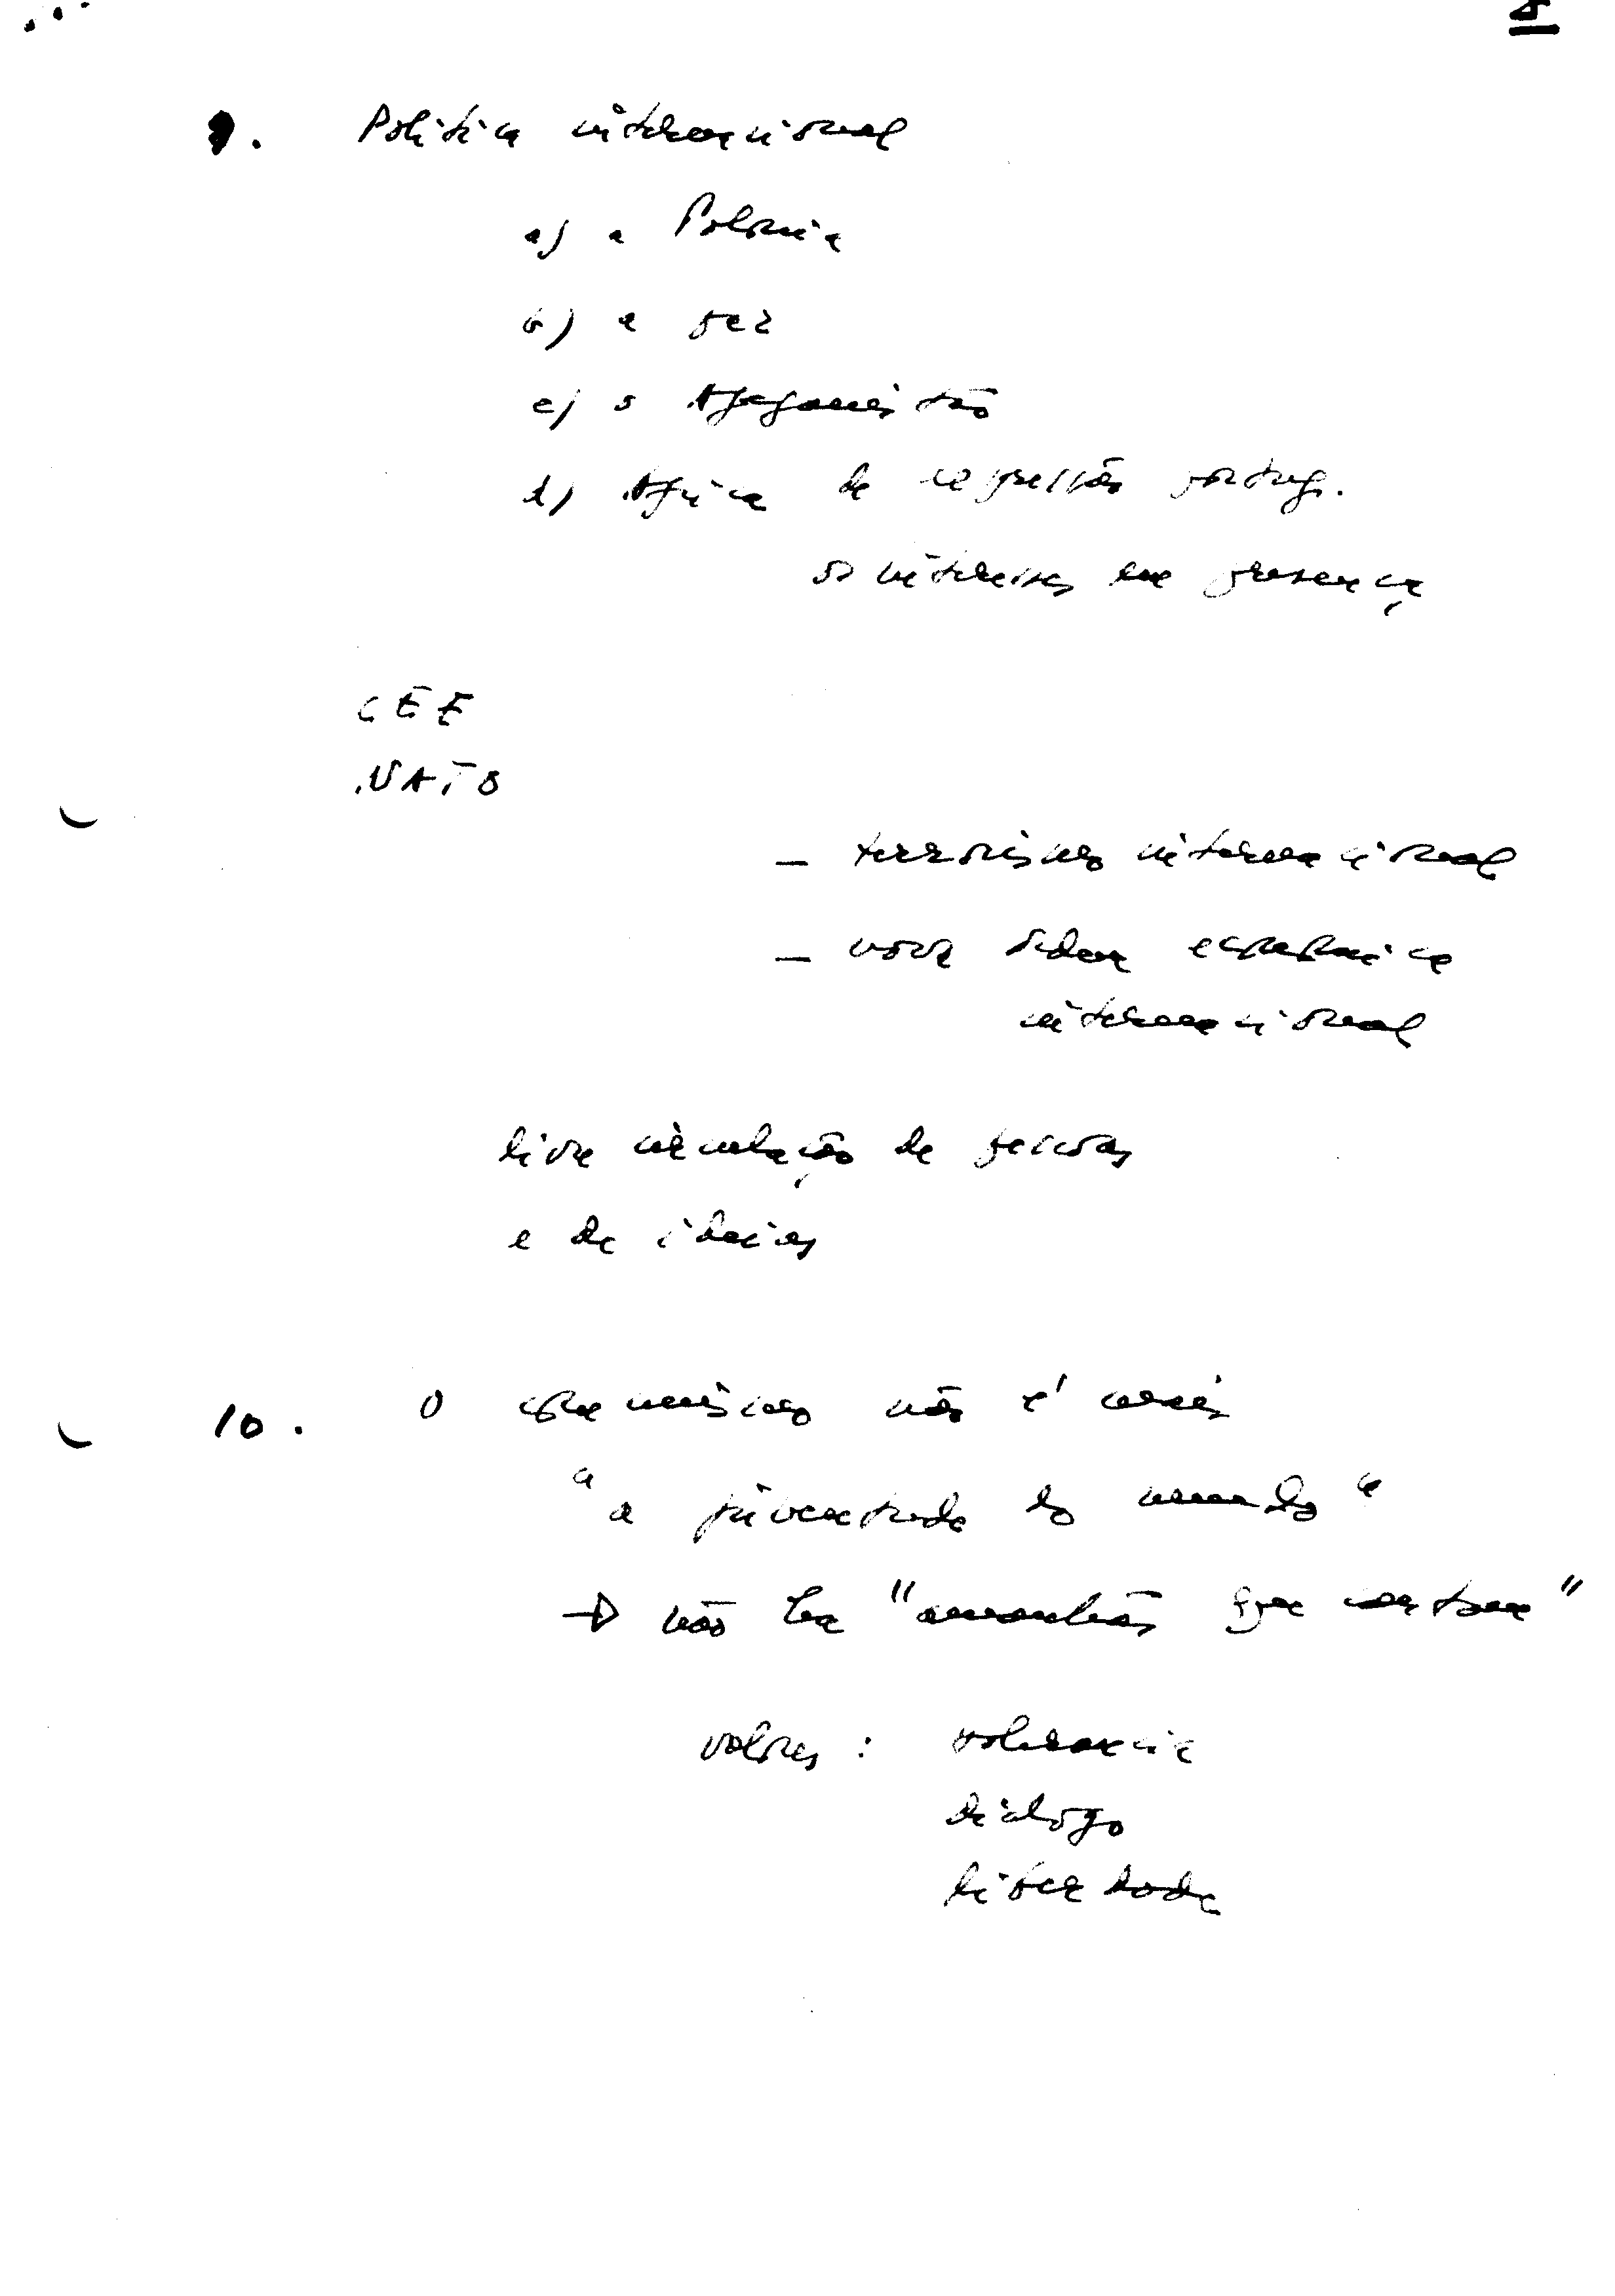 9. Politica internacional
a) a Polonia
b) a paz
c) o Afeganistão
d) Africa de expressão portug.
os interesses em presença
CEE
NATO
— terrorismo internacional
— nova ordem economica
internacional
livre circulação de pessoas
e de ideias
10. O comunismo não é mais
"a juventude do mundo"
→ não ha "amanhãs que cantam"
valores : tolerancia
diálogo
liberdade